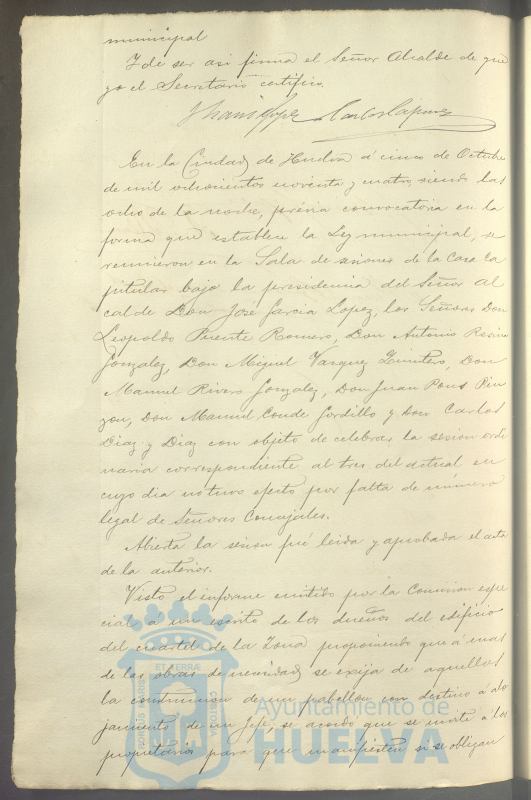 municipal
Y de ser asi firma el Señor Alcalde de que
yo el Secretario certifico.
En la Ciudad de Huelva á cinco de Octubre
de mil ochocientos noventa y cuatro, siendo las
ocho de la noche, prévia convocatoria en la
forma que establece la Ley municipal, se
reunieron en la Sala de sesiones de la Casa Ca
pitular bajo la presidencia del Señor Al
calde Don José Garcia Lopez, los Señores Don
Leopoldo Puente Romero, Don Antonio
Gonzalez, Don Miguel Vazquez Quintero, Don
Manuel Rivero Gonzalez, Don Juan Pons Pin
zon, Don Manuel Conde Gordillo y Don Carlos
Diaz y Diaz con objeto de celebrar la sesion ordi
naria correspondiente al tres del actual en
cuyo dia no tuvo efecto por falta de número
legal de Señores Concejales.
Abierta la sesion fué leida y aprobada el acta
de la anterior.
Visto el informe emitido por la Comision espe
cial á un escrito de los dueños del edificio
del cuartel de la Zona proponiendo que á mas
de las obras de necesidad se exija de aquellos
la construccion de un pabellon con destino á alo
jamiento de un Jefe, se acordó que se invite á los
propietarios para que manifiesten si se obligan
ET TERRÆ
PORTUS MARIS
CUSTODIA
Ayuntamiento de
HUELVA